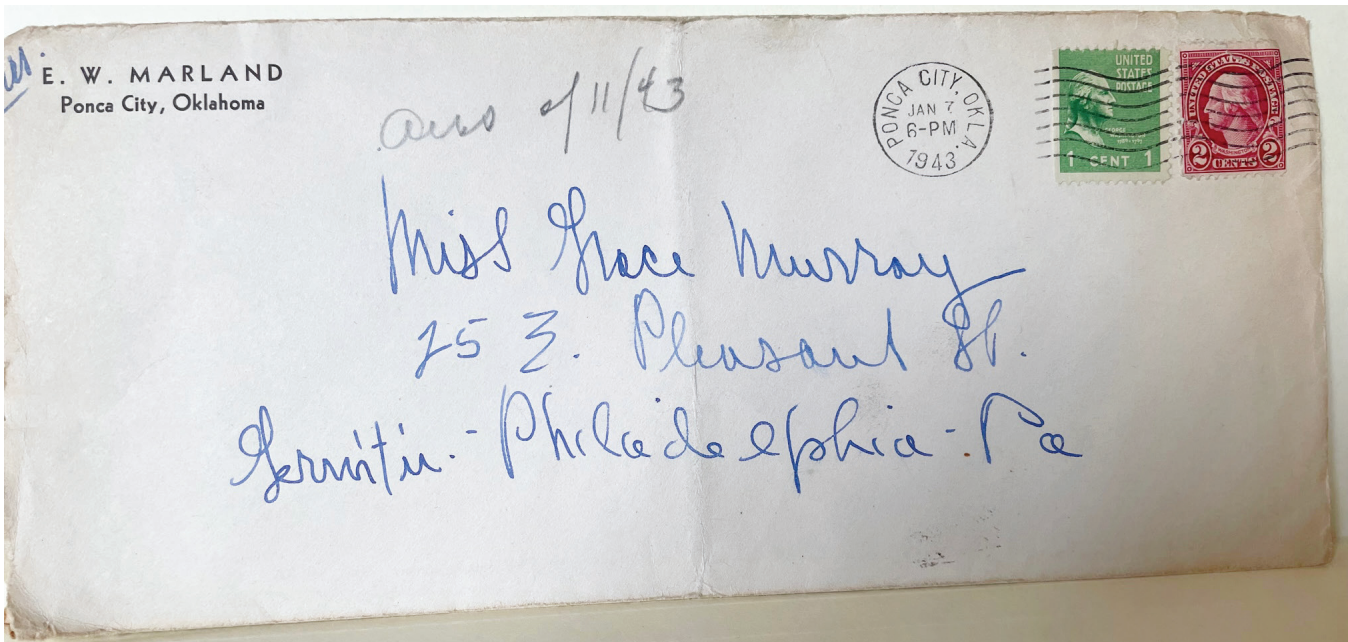 E. W. MARLAND
Ponca City, Oklahoma
ans 4/11/43
PONCA CITY, OKLA.
JAN 7
6-PM
1943
UNITED
STATES
POSTAGE
1 CENT 1
UNITED STATES POSTAGE
2 CENTS 2
Miss Grace Murray
25 E. Pleasant St.
Philadelphia - Pa